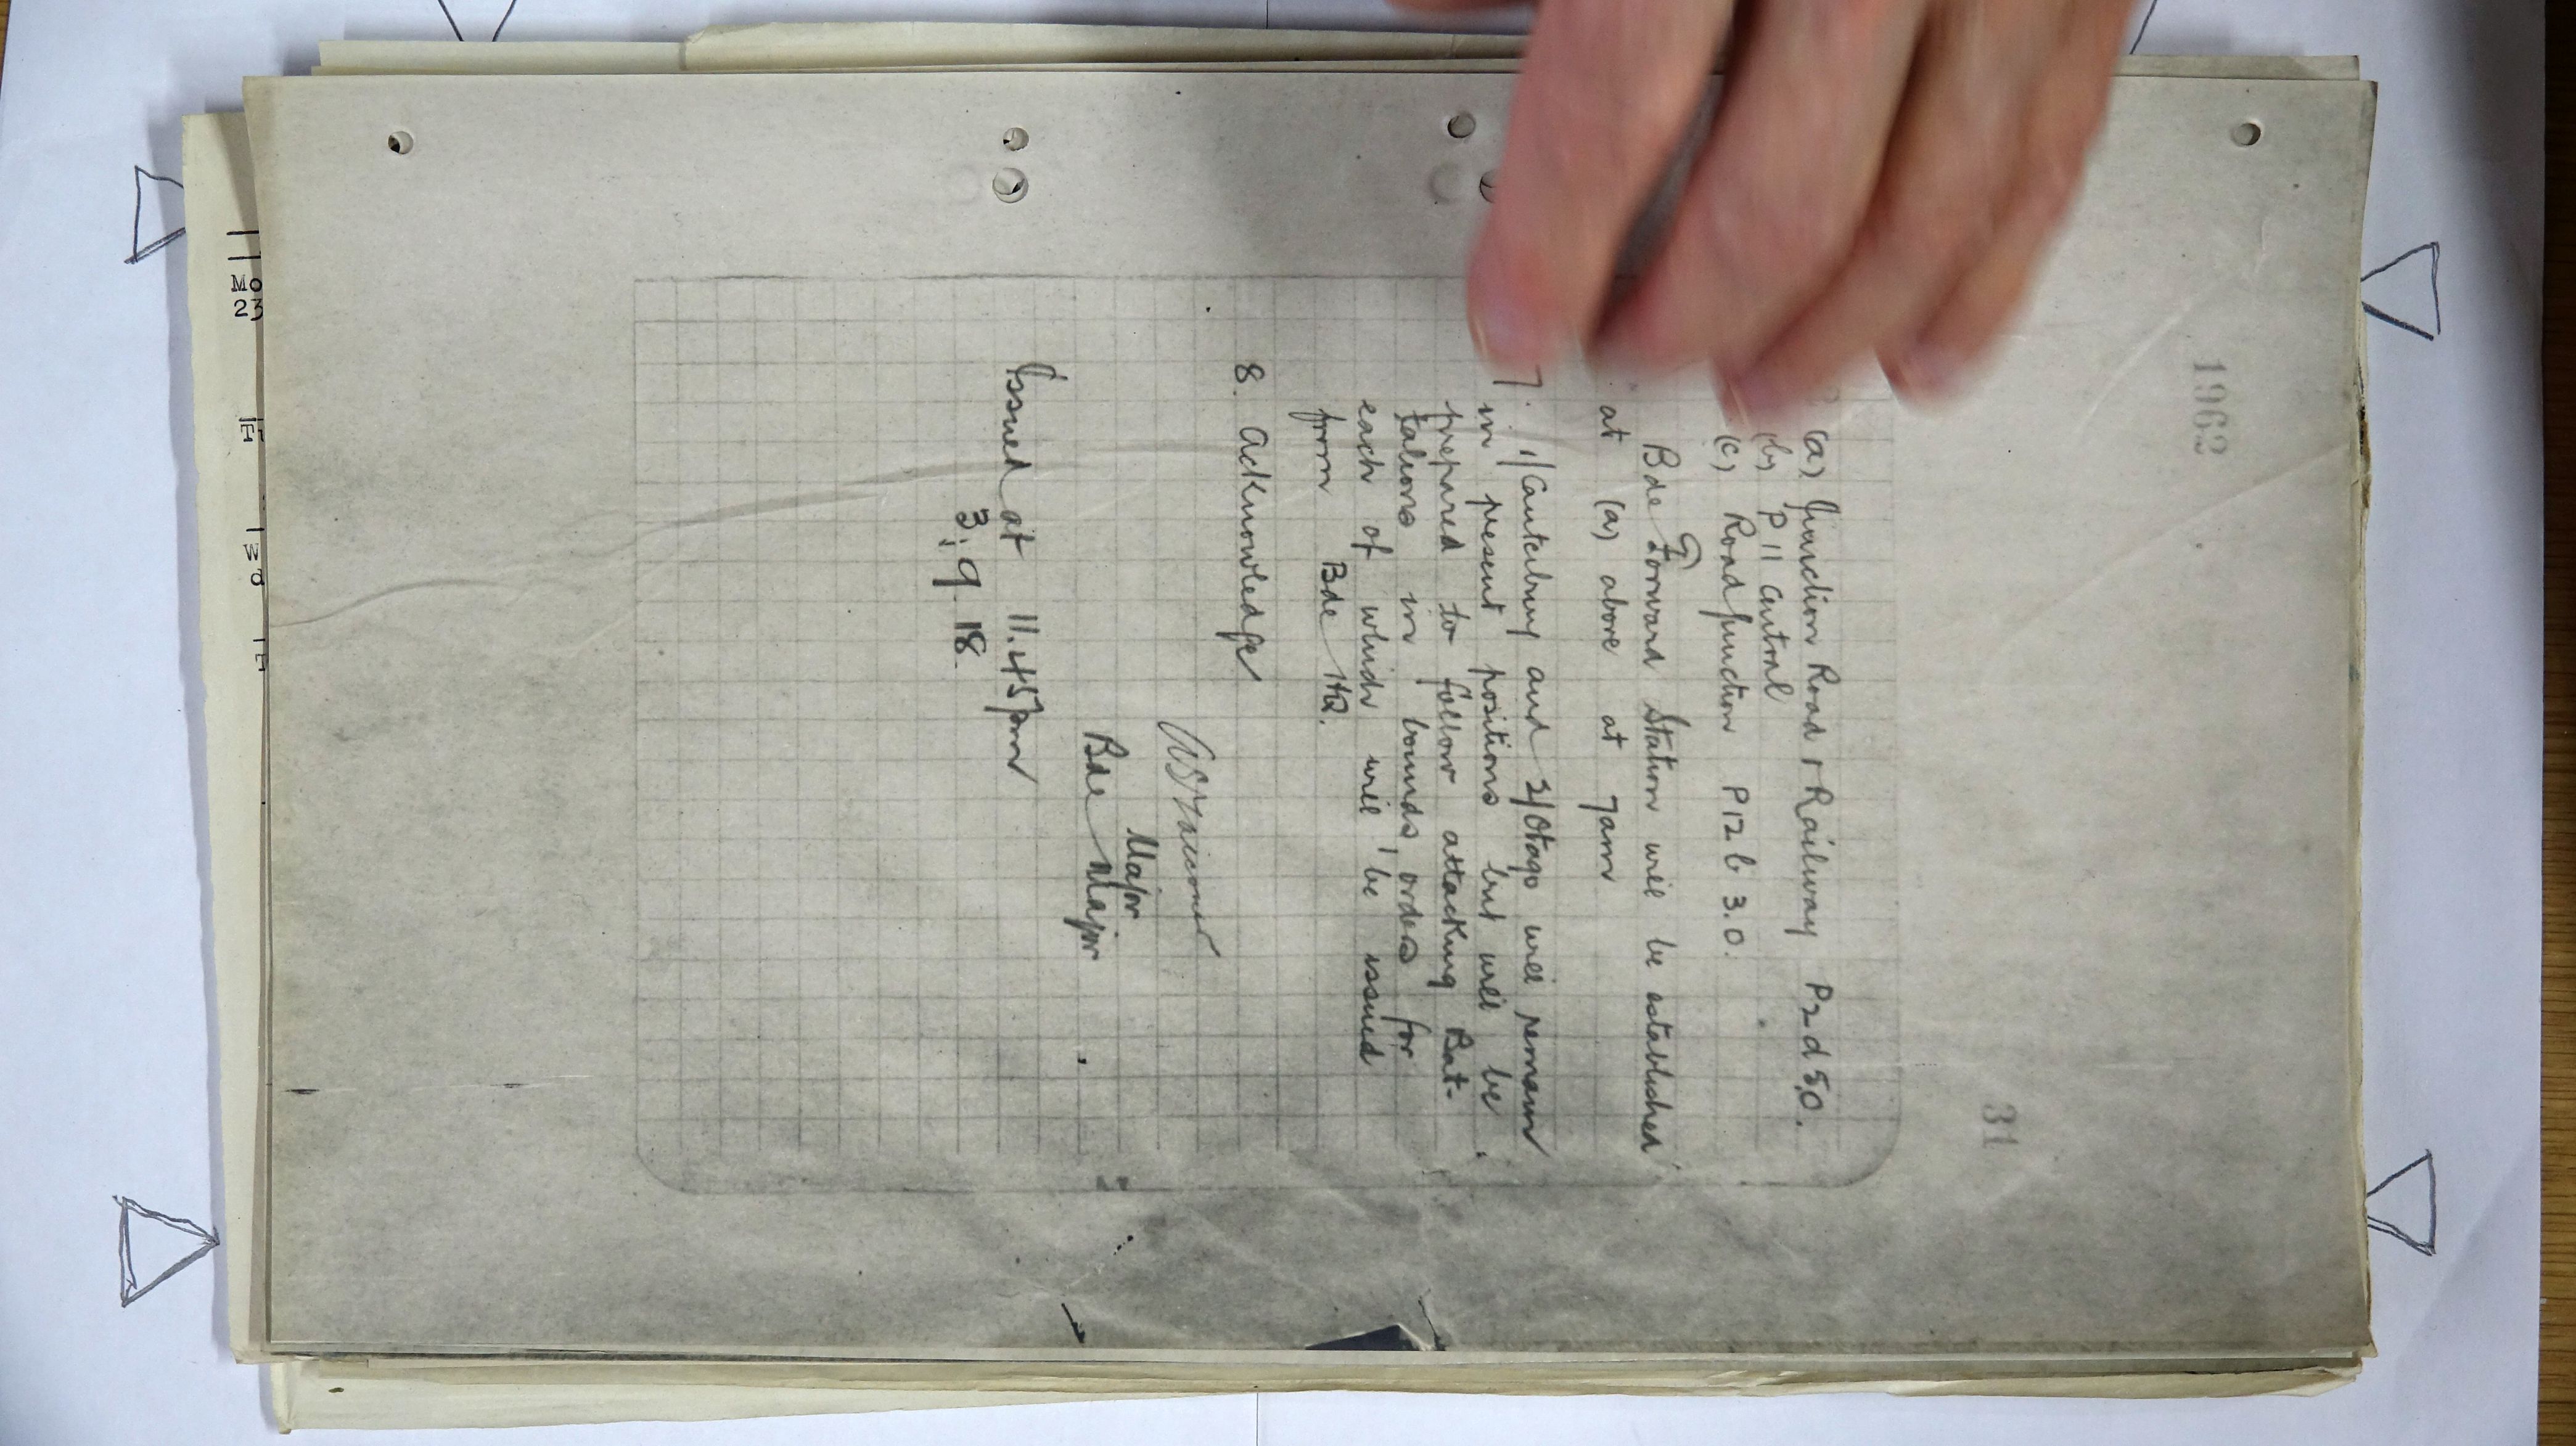 1962
31
(a) Junction Road & Railway P2d 5.0.
(b) P11 central
(c) Road junction P12 b 3.0.
Bde Forward Station will be established
at (a) above at 7am
7. 1/Canterbury and 2/Otago will remain
in present positions but will be
prepared to follow attacking Bat-
talions in bounds, orders for
each of which will be issued
from Bde HQ.
8. Acknowledge
Major
Bde Major
Issued at 11.45pm
3.9.18.
Mo
23